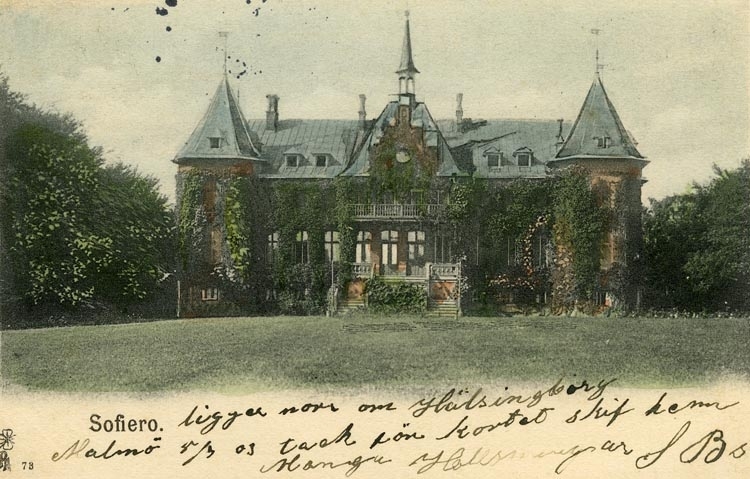 Sofiero. ligger norr om Hälsingborg
Malmö 5/3 03 tack för kortet skif henn
Många Hällsningar S Bs
73